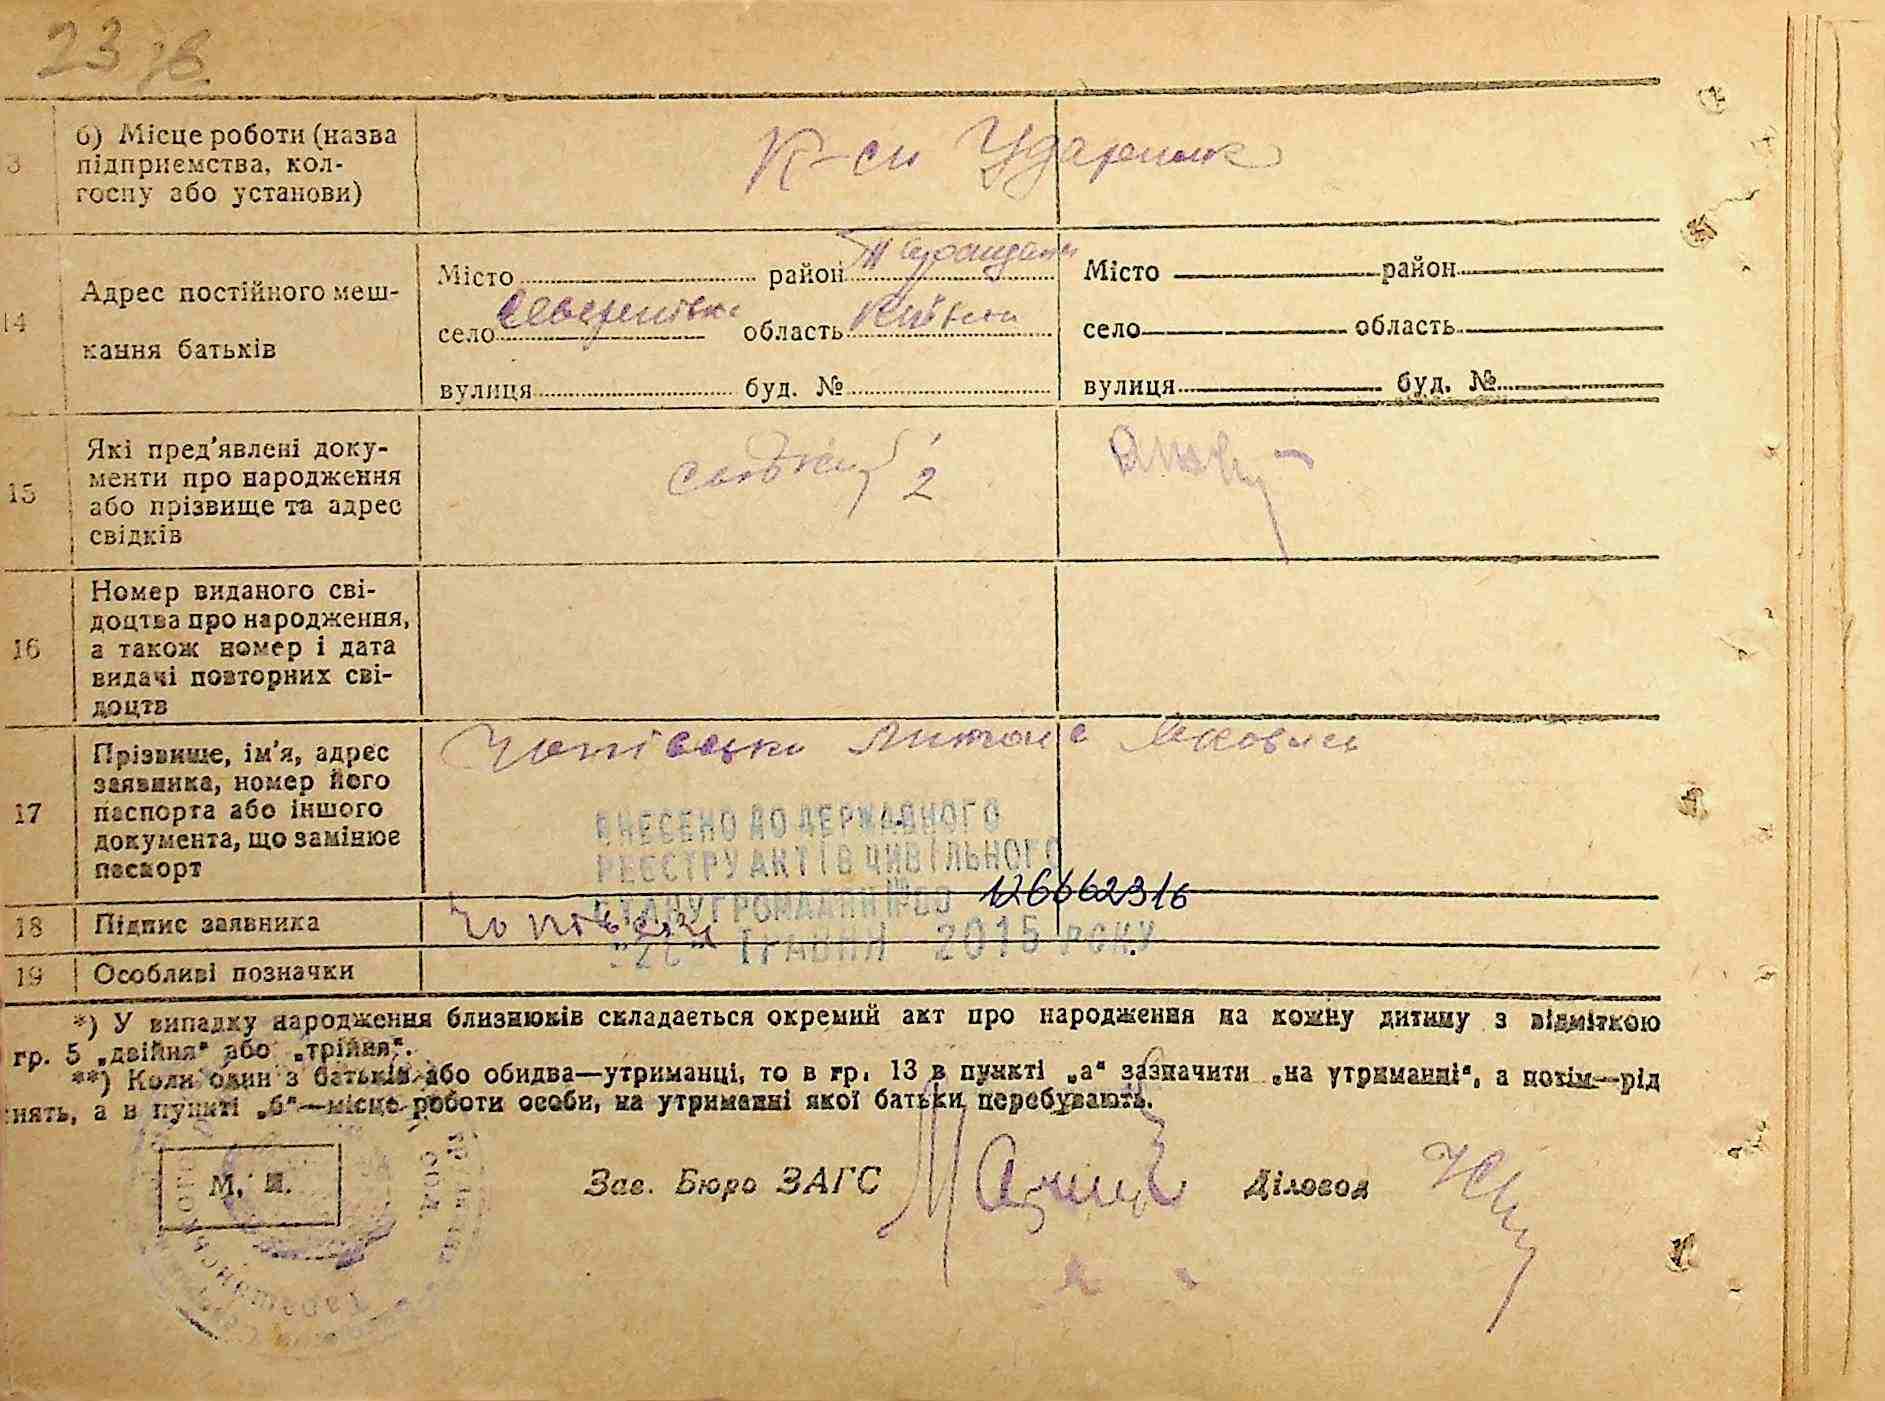 23 зв.
3 б) Місце роботи (назва
підприємства, кол-
госпу або установи)
К-сп Ударник
14 Адрес постійного меш-
кання батьків
Місто район Таращан
село Северинівка область Київськ
вулиця буд. №
Місто район
село область
вулиця буд. №
15 Які пред'явлені доку-
менти про народження
або прізвище та адрес
свідків
2
16 Номер виданого сві-
доцтва про народження,
а також номер і дата
видачі повторних сві-
доцтв
17 Прізвище, ім'я, адрес
заявника, номер його
паспорта або іншого
документа, що замінює
паспорт
ВНЕСЕНО ДО ДЕРЖАВНОГО
РЕЄСТРУ АКТІВ ЦИВІЛЬНОГО
СТАНУ ГРОМАДЯН №00 126662316
ТРАВНЯ 2015 РОКУ
18 Підпис заявника
19 Особливі позначки
*) У випадку народження близнюків складається окремий акт про народження на кожну дитину з відміткою
гр. 5 „двійня" або „трійня".
**) Коли один з батьків або обидва—утриманці, то в гр. 13 в пункті „а" зазначити „на утриманні", а потім—рід
нять, а в пункті „б"—місце роботи особи, на утриманні якої батьки перебувають.
М. П.
Зав. Бюро ЗАГС Діловод